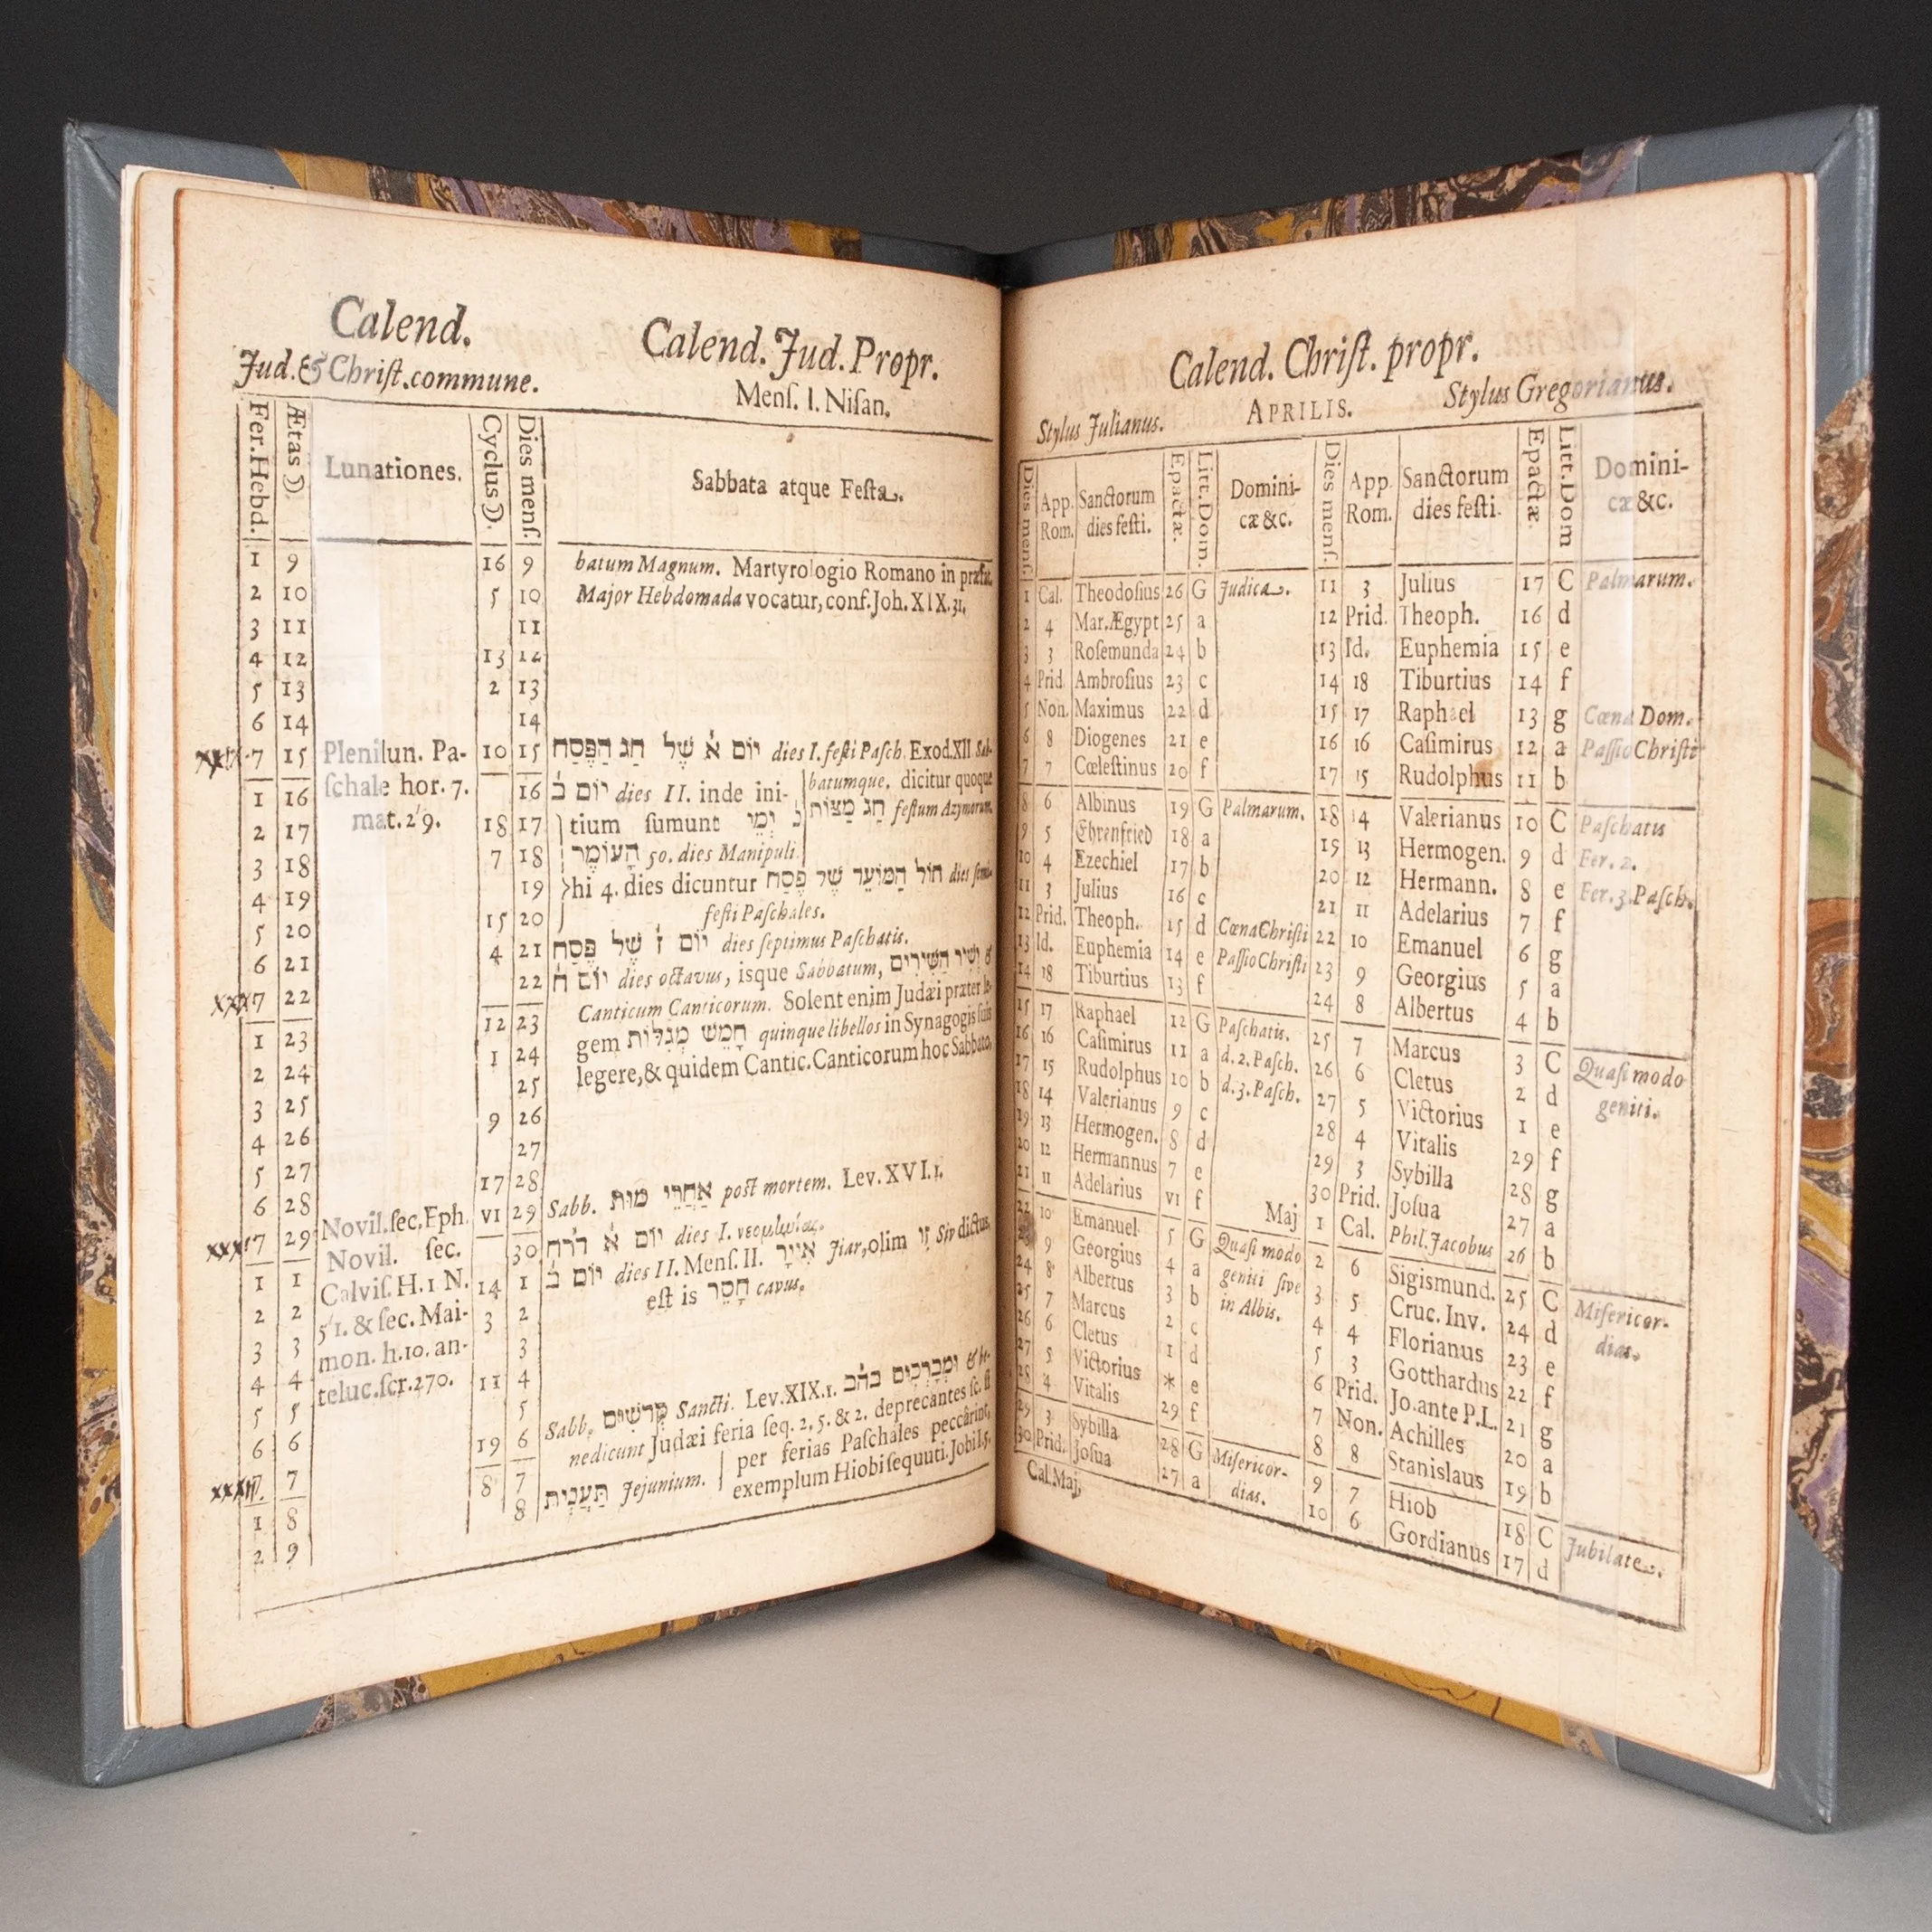 Calend.
Jud. & Chriſt. commune.
Calend. Jud. Propr.
Menſ. I. Niſan,
Fer. Hebd. Ætas ☽. Lunationes. Cyclus ☽. Dies menſ. Sabbata atque Feſta.
1 9 16 9 batum Magnum. Martyrologio Romano in præfat.
2 10 5 10 Major Hebdomada vocatur, conf. Joh. XIX. 31.
3 11 11
4 12 13 12
5 13 2 13
6 14 14
7 15 Plenilun. Pa- 10 15 יוֹם א שֶׁל חַג הַפֶּסַח dies I. feſti Paſch. Exod. XII Sab-
1 16 ſchale hor. 7. 16 יוֹם ב dies II. inde ini- batumque, dicitur quoque
2 17 mat. 2'9. 18 17 tium ſumunt נ יְמֵי חַג מַצּוֹת feſtum Azymorum.
3 18 7 18 הָעוֹמֶר 50. dies Manipuli.
4 19 19 hi 4. dies dicuntur חוֹל הַמּוֹעֵד שֶׁל פֶּסַח dies ſemi-
5 20 15 20 feſti Paſchales.
6 21 4 21 יוֹם ז שֶׁל פֶּסַח dies ſeptimus Paſchatis.
7 22 22 יוֹם ח dies octavus, isque Sabbatum, וְשִׁיר הַשִּׁירִים &
Canticum Canticorum. Solent enim Judæi præter le-
1 23 12 23 gem חָמֵשׁ מְגִלּוֹת quinque libellos in Synagogis ſuis
2 24 1 24 legere, & quidem Cantic. Canticorum hoc Sabbato.
3 25 25
4 26 9 26
5 27 27
6 28 Novil. ſec. Eph. 17 28
7 29 Novil. ſec. VI 29 Sabb. אַחֲרֵי מוֹת poſt mortem. Lev. XVI. 1.
30 יוֹם א דר״ח dies I. νεομηνίας.
1 1 Calviſ. H. 1 N. 14 1 יוֹם ב dies II. Menſ. II. אִיָּיר Jiar, olim זִו Siv dictus,
2 2 5'1. & ſec. Mai- 3 2 eſt is חָסֵר cavus.
3 3 mon. h. 10. an- 3
4 4 teluc. ſcr. 270. 11 4
5 5 5
6 6 19 6 Sabb. קְדשִׁים Sancti. Lev. XIX. 1. וּמְבָרְכִים בה״ב & be-
7 7 8 7 nedicunt Judæi feria ſeq. 2, 5. & 2. deprecantes ſc. ſi
1 8 8 תַּעֲנִית Jejunium. per ferias Paſchales peccârint,
2 9 exemplum Hiobi ſequuti. Job. I, 5.
Calend. Chriſt. propr.
Stylus Julianus. APRILIS. Stylus Gregorianus.
Dies menſ. App. Rom. Sanctorum dies feſti. Epactæ. Litt. Dom. Domini-cæ &c. Dies menſ. App. Rom. Sanctorum dies feſti. Epactæ Litt. Dom Domini-cæ &c.
1 Cal. Theodoſius 26 G Judica. 11 3 Julius 17 C Palmarum.
2 4 Mar. Ægypt 25 a 12 Prid. Theoph. 16 d
3 3 Roſemunda 24 b 13 Id. Euphemia 15 e
4 Prid. Ambroſius 23 c 14 18 Tiburtius 14 f
5 Non. Maximus 22 d 15 17 Raphael 13 g Cœna Dom.
6 8 Diogenes 21 e 16 16 Caſimirus 12 a Paſſio Chriſti
7 7 Cœleſtinus 20 f 17 15 Rudolphus 11 b
8 6 Albinus 19 G Palmarum. 18 14 Valerianus 10 C Paſchatis
9 5 Ehrenfried 18 a 19 13 Hermogen. 9 d Fer. 2.
10 4 Ezechiel 17 b 20 12 Hermann. 8 e Fer. 3. Paſch.
11 3 Julius 16 c 21 11 Adelarius 7 f
12 Prid. Theoph. 15 d Cœna Chriſti 22 10 Emanuel 6 g
13 Id. Euphemia 14 e Paſſio Chriſti 23 9 Georgius 5 a
14 18 Tiburtius 13 f 24 8 Albertus 4 b
15 17 Raphael 12 G Paſchatis. 25 7 Marcus 3 C Quaſimodo
16 16 Caſimirus 11 a d. 2. Paſch. 26 6 Cletus 2 d geniti.
17 15 Rudolphus 10 b d. 3. Paſch. 27 5 Victorius 1 e
18 14 Valerianus 9 c 28 4 Vitalis 29 f
19 13 Hermogen. 8 d 29 3 Sybilla 28 g
20 12 Hermannus 7 e 30 Prid. Joſua 27 a
21 11 Adelarius VI f Maj 1 Cal. Phil. Jacobus 26 b
22 10 Emanuel 5 G Quaſi modo 2 6 Sigismund. 25 C Miſericor-
9 Georgius 4 a geniti ſive 3 5 Cruc. Inv. 24 d dias.
24 8 Albertus 3 b in Albis. 4 4 Florianus 23 e
25 7 Marcus 2 c 5 3 Gotthardus 22 f
26 6 Cletus 1 d 6 Prid. Jo. ante P. L. 21 g
27 5 Victorius * e 7 Non. Achilles 20 a
28 4 Vitalis 29 f 8 8 Stanislaus 19 b
29 3 Sybilla 28 G Miſericor- 9 7 Hiob 18 C Jubilate.
30 Prid. Joſua 27 a dias. 10 6 Gordianus 17 d
Cal. Maj.